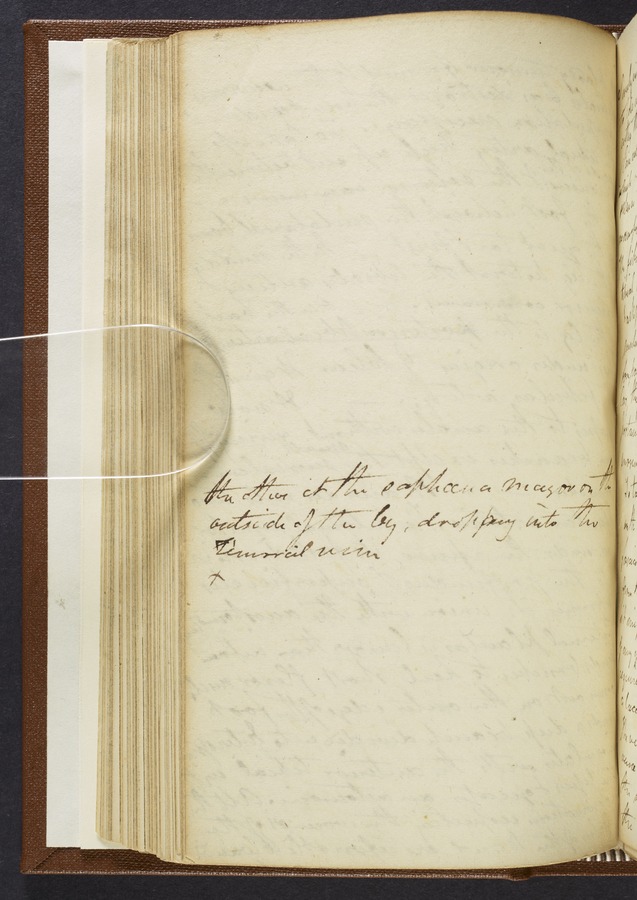 the other is the saphæna major on th
outside of the leg, dropping into the
Femorial vein
x